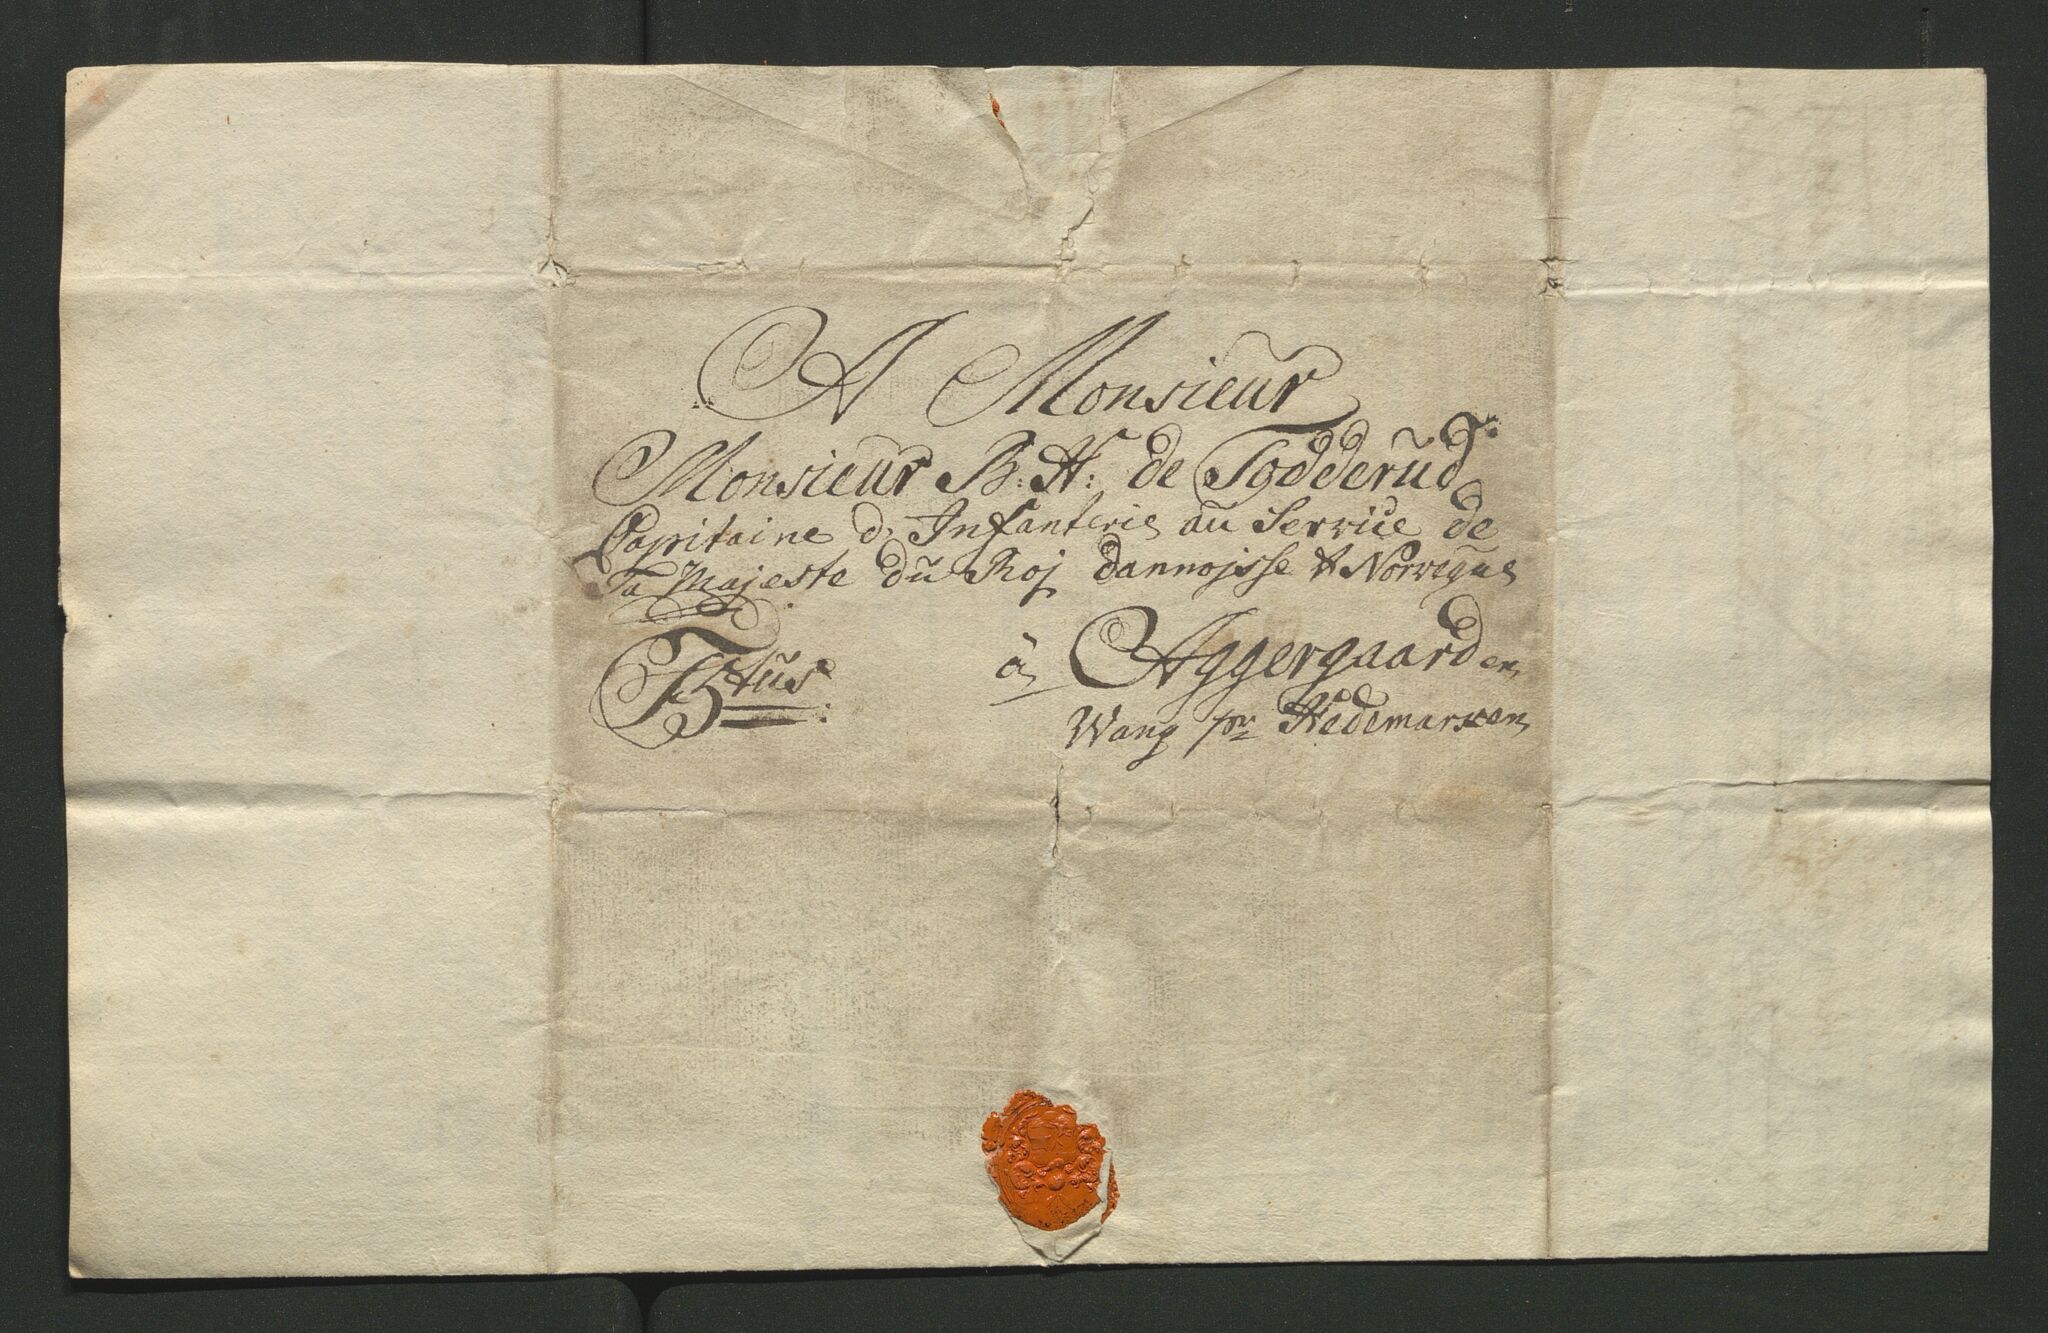 A Monsieur
Monsieur B: H: de Todderud
Capitaine d'Infanterie au Service de
Sa Majeste du Roj dannojsse & Norvegue
à Aggergaarden
Wang pr Hedemarken